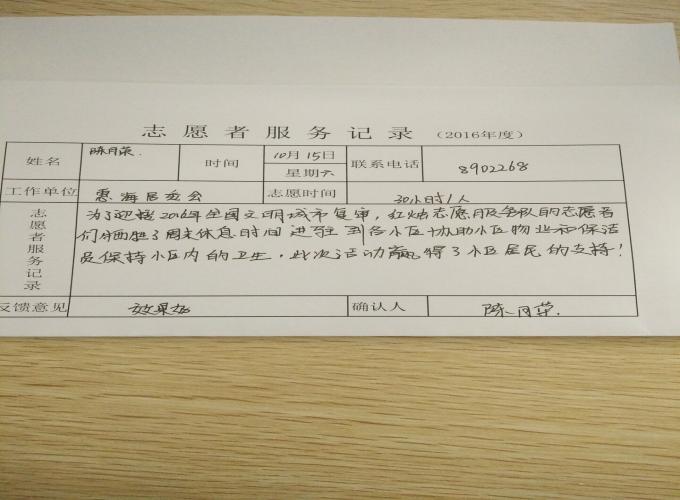 志愿者服务记录（2016年度）
姓名 陈月荣. 时间 10月15日 星期六 联系电话 8902268
工作单位 惠海居委会 志愿时间 30小时/人
志愿者服务记录
为了迎接2016年全国文明城市复审，红烛志愿服务队的志愿者
们牺牲了周末休息时间进驻到各小区协助小区物业和保洁
员保持小区内的卫生，此次活动赢得了小区居民的支持！
反馈意见 效果好 确认人 陈月荣.